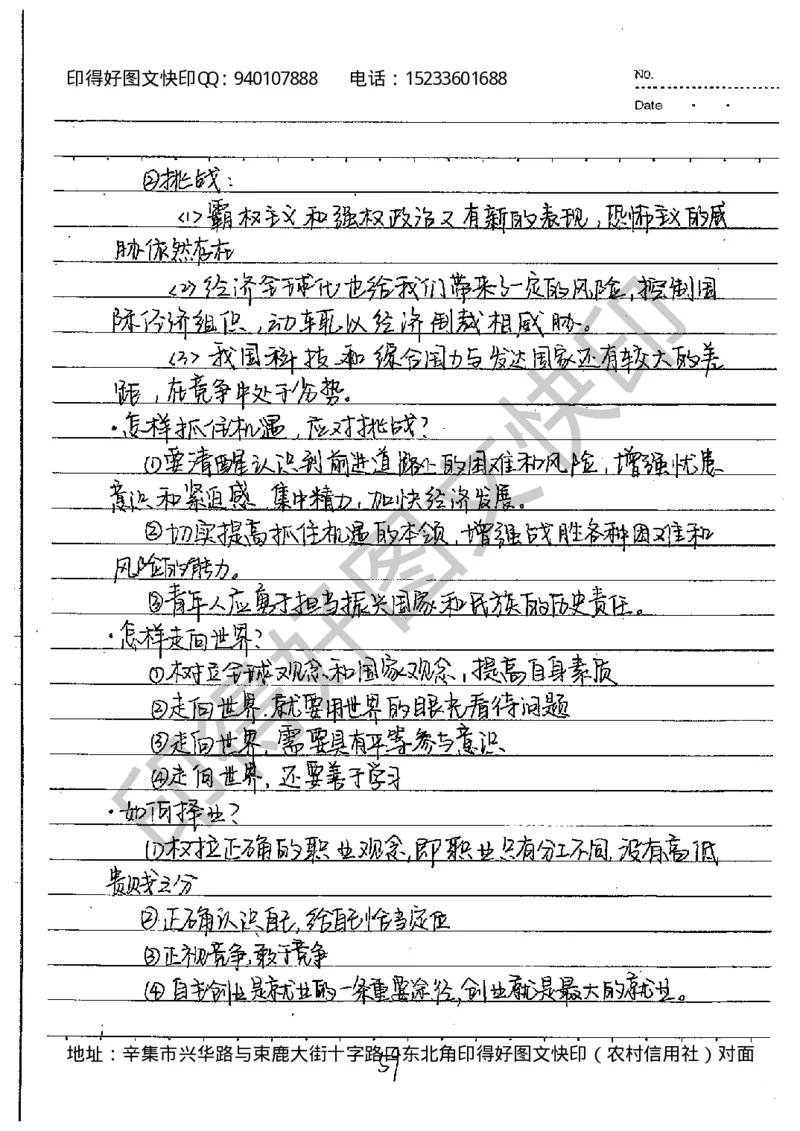 印得好图文快印QQ：940107888 电话：15233601688
No.
Date
②挑战：
〈1〉霸权主义和强权政治又有新的表现，恐怖主义的威
胁依然存在
〈2〉经济全球化也给我们带来了一定的风险，控制国
际经济组织，动辄以经济制裁相威胁。
〈3〉我国科技和综合国力与发达国家还有较大的差
距，在竞争中处于劣势。
·怎样抓住机遇，应对挑战？
①要清醒认识到前进道路上的困难和风险，增强忧患
意识和紧迫感 集中精力，加快经济发展。
②切实提高抓住机遇的本领，增强战胜各种困难和
风险的能力。
③青年人应勇于担当振兴国家和民族的历史责任。
·怎样走向世界？
①树立全球观念和国家观念，提高自身素质
②走向世界，就要用世界的眼光看待问题
③走向世界，需要具有平等参与意识
④走向世界，还要善于学习
·如何择业？
①树立正确的职业观念，即职业只有分工不同，没有高低
贵贱之分
②正确认识自己，给自己恰当定位
③正视竞争，敢于竞争
④自主创业是就业的一条重要途径，创业就是最大的就业。
地址：辛集市兴华路与束鹿大街十字路口东北角印得好图文快印（农村信用社）对面
印得好图文快印